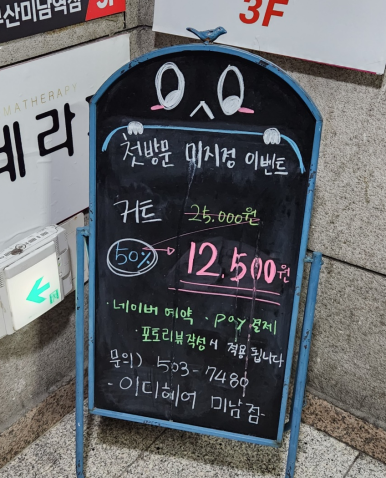 부산미남역점
3F
MATHERAPY
첫방문 미지정 이벤트
커트 25.000원
50% → 12.500원
· 네이버 예약 · pay 결제
· 포토리뷰작성시 적용됩니다
문의) 503-7480
- 이디헤어 미남점 -